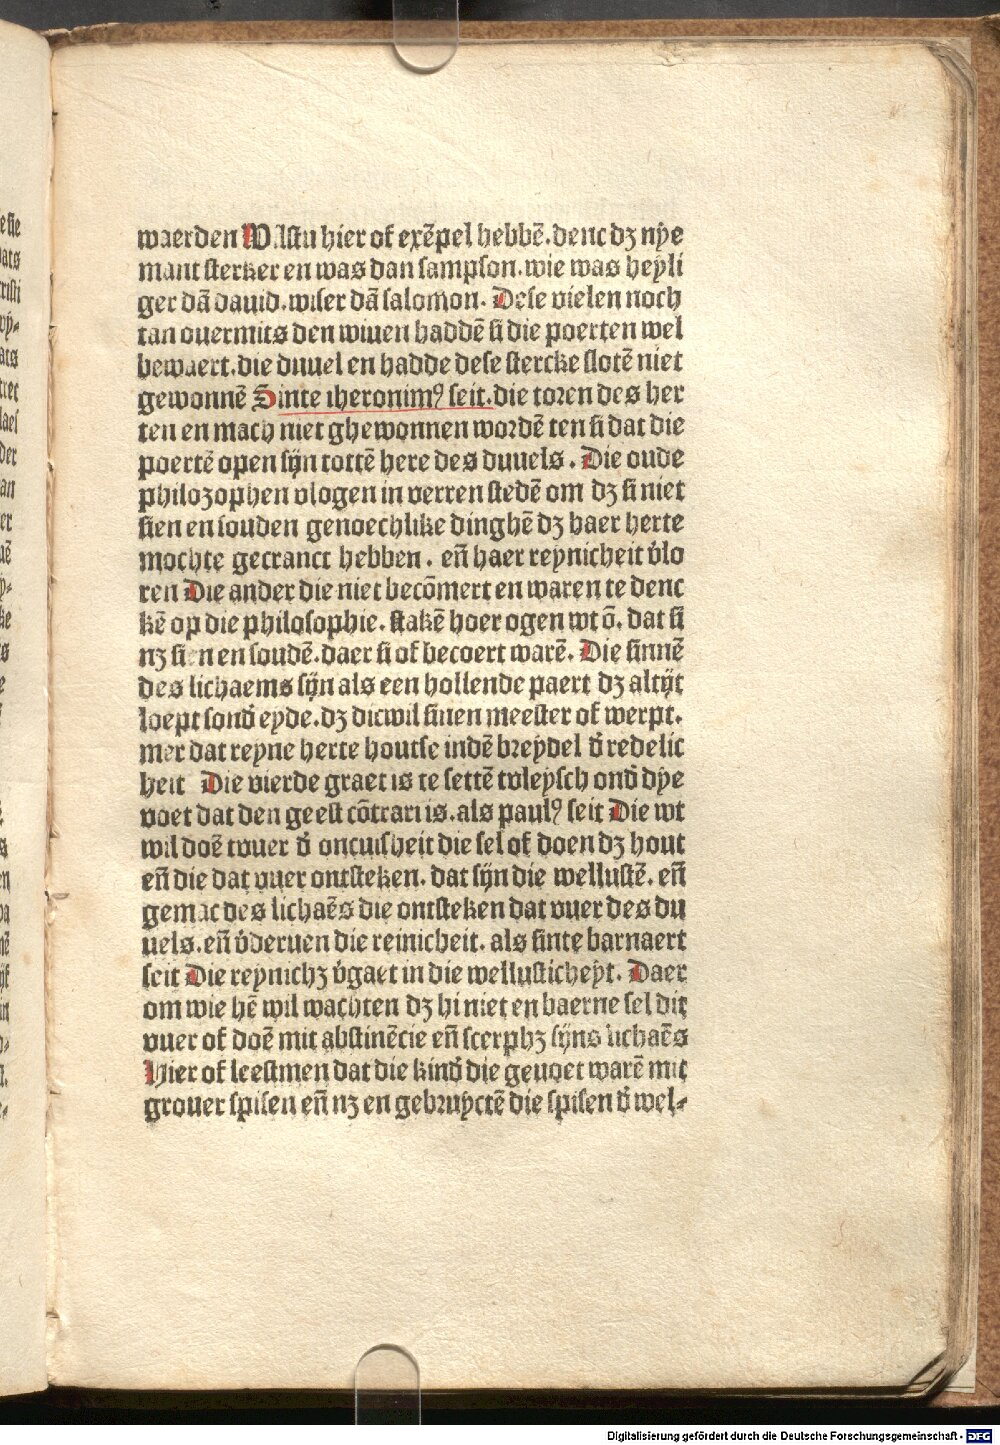 waerden Wilstu hier of exẽpel hebbẽ. denc dʒ nye
mant sterker en was dan sampson. wie was heyli
ger dã dauid. wiser dã salomon. Dese vielen noch
tan ouermits den wiuen haddẽ si die poerten wel
bewaert. die duuel en hadde dese stercke slotẽ niet
gewonnẽ Sinte iheronimꝰ seit. die toren des her
ten en mach niet ghewonnen wordẽ ten si dat die
poertẽ open sijn tottẽ here des duuels. Die oude
philozophen vlogen in verren stedẽ om dʒ si niet
sien en souden genoechlike dinghẽ dʒ haer herte
mochte gecranct hebben. eñ haer reynicheit v̉lo
ren Die ander die niet becõmert en waren te denc
kẽ op die philosophie. stakẽ hoer ogen wt õ. dat si
nʒ sien en soudẽ. daer si of becoert warẽ. Die sinnẽ
des lichaems sijn als een hollende paert dʒ altijt
loept sond̉ eyde. dʒ dicwil sinen meester of werpt.
mer dat reyne herte houtse indẽ breydel d̉ redelic
heit Die vierde graet is te settẽ tvleysch ond̉ dye
voet dat den geest cõtrari is. als paulꝰ seit Die wt
wil doẽ tvuer d̉ oncuisheit die sel of doen dʒ hout
eñ die dat vuer ontsteken. dat sijn die wellustẽ. eñ
gemac des lichaẽs die ontsteken dat vuer des du
uels. eñ v̉deruen die reinicheit. als sinte barnaert
seit Die reynichʒ v̉gaet in die wellusticheyt. Daer
om wie hẽ wil wachten dʒ hi niet en baerne sel dit
vuer of doẽ mit abstinẽcie eñ scerphʒ sijns lichaẽs
Hier of leestmen dat die kind̉ die geuoet warẽ mit
grouer spisen eñ nʒ en gebruyctẽ die spisen d̉ wel-
Digitalisierung gefördert durch die Deutsche Forschungsgemeinschaft - DFG